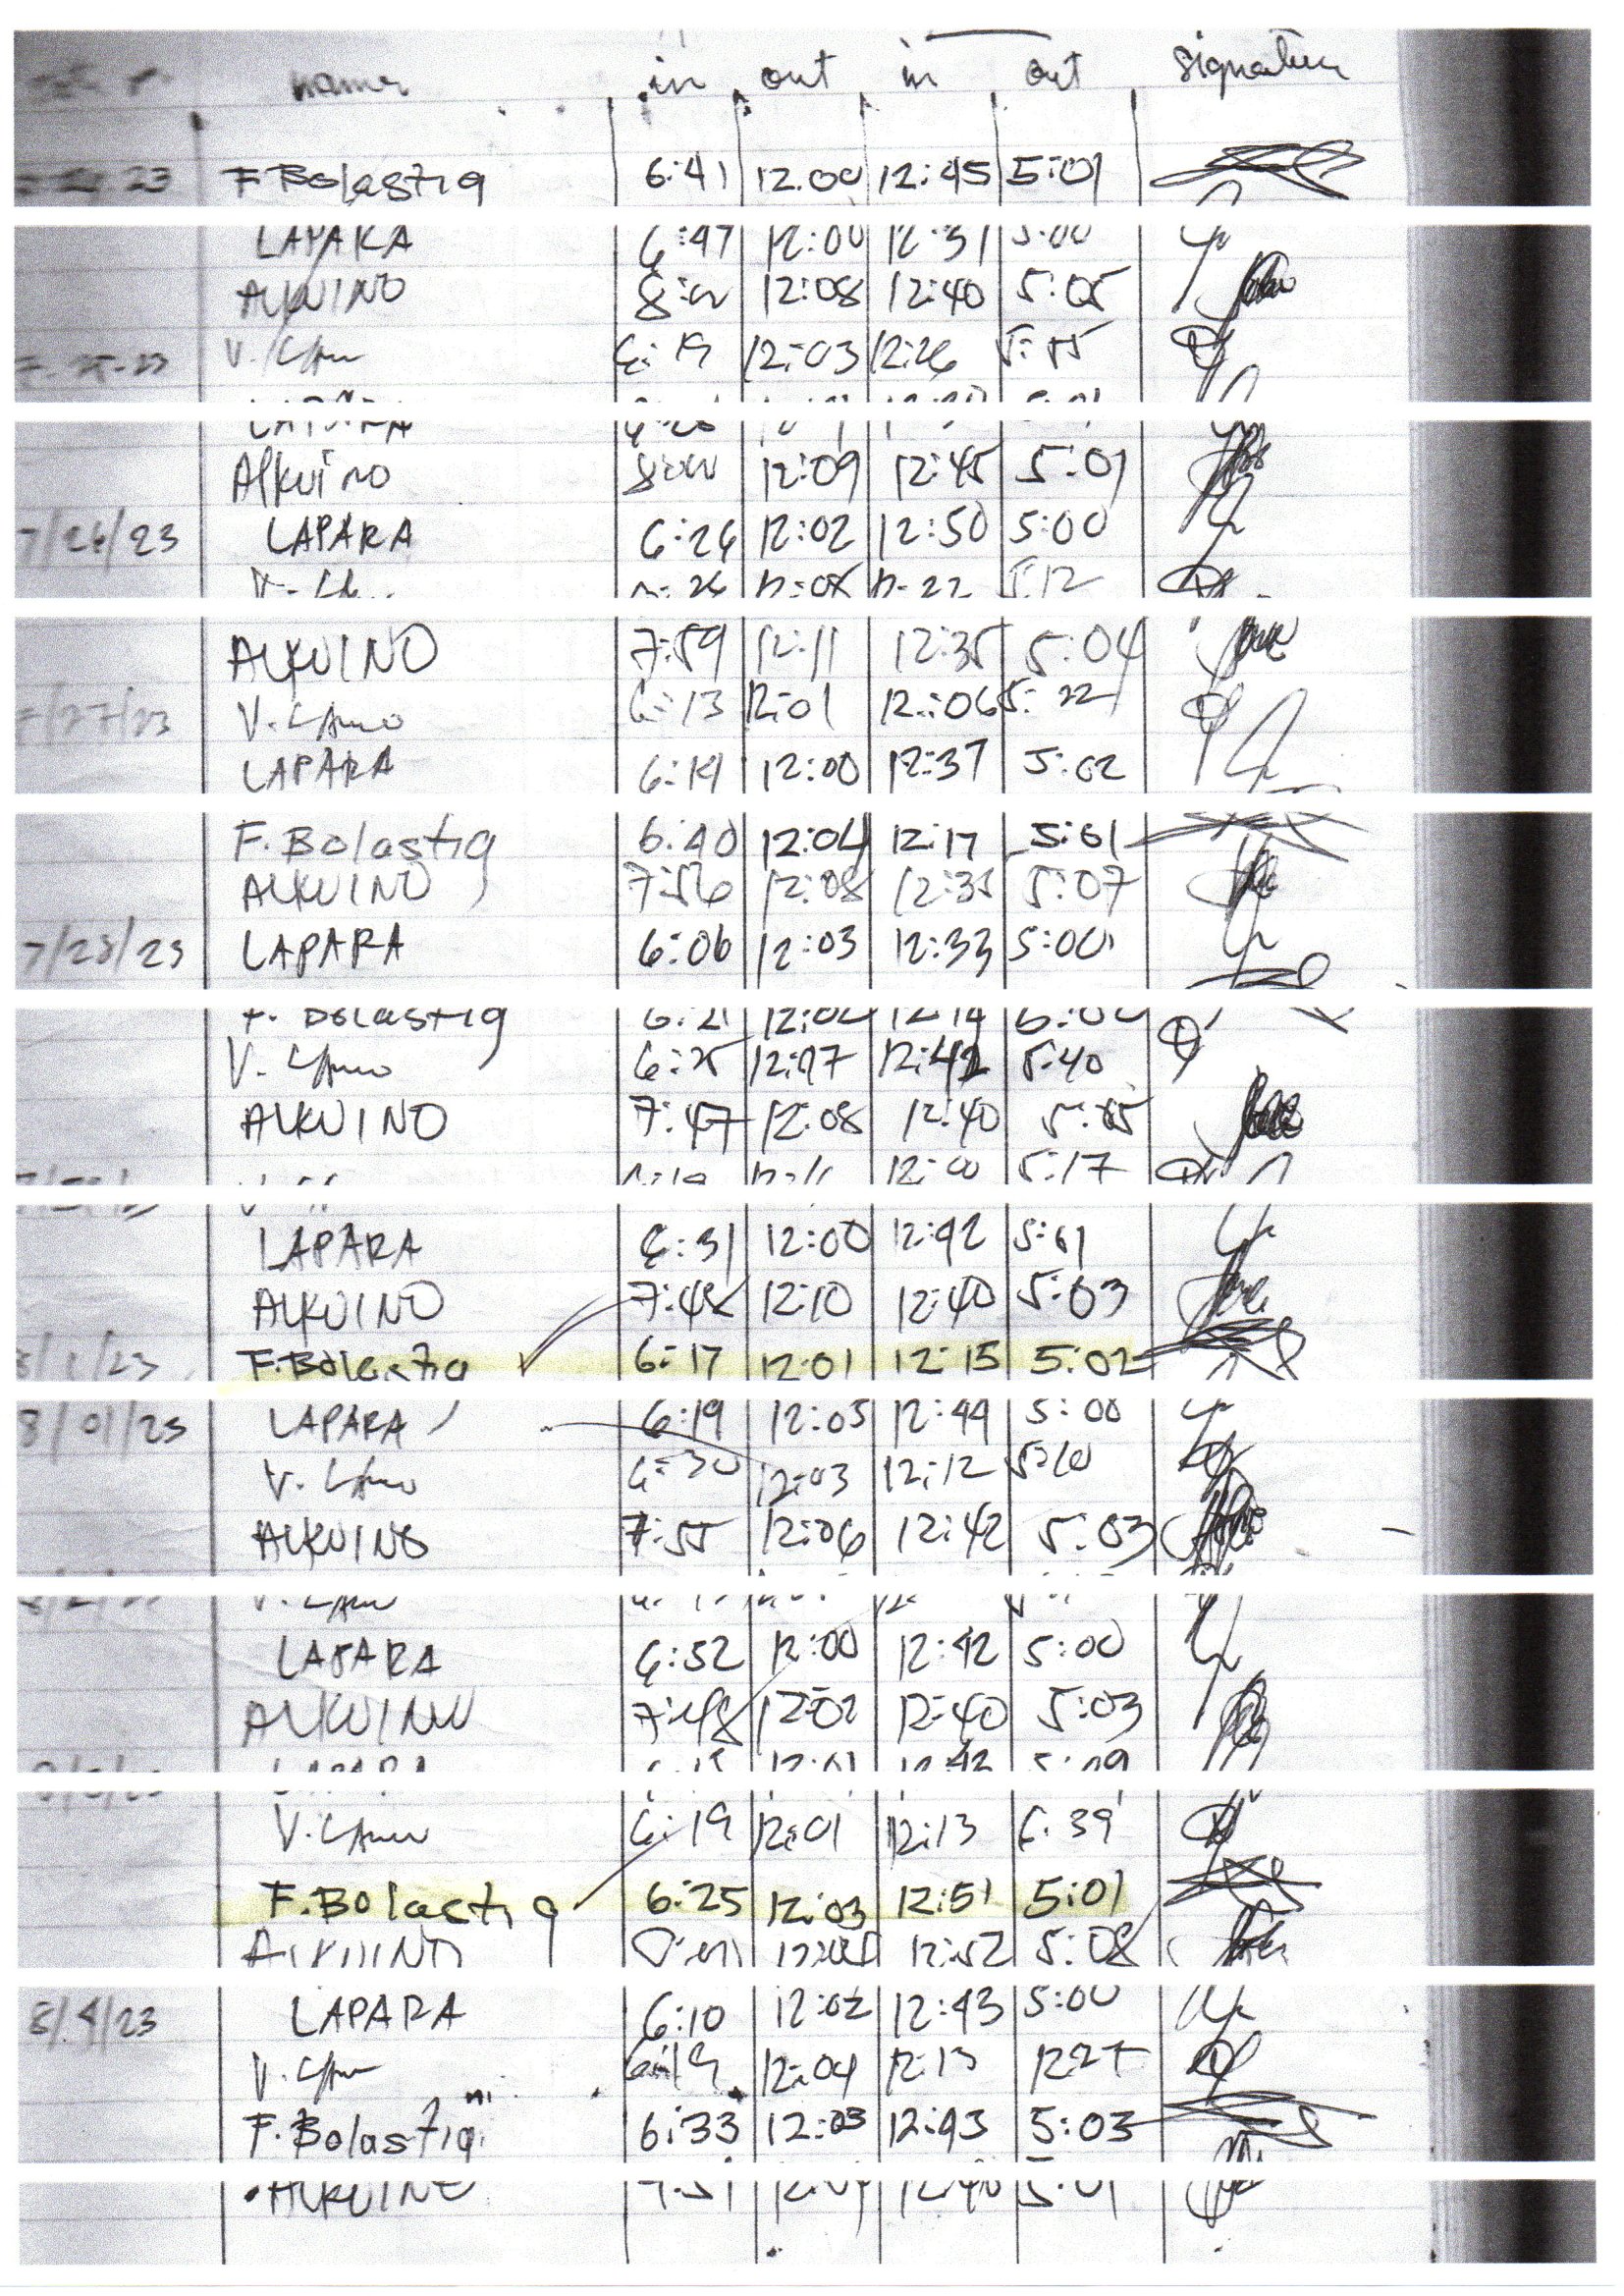 name in out in out signature
23 F. Bolastig 6:41 12.00 12:45 5:01
LAPARA 6:47 12:00 12:31 5:00
ALKUINO 12:08 12:40 5:05
7-25-23 V. 6:19 12:03 12:26 5:55
LAPARA
Alkuino 8:00 12:09 12:45 5:01
7/26/23 LAPARA 6:26 12:02 12:50 5:00
V. 12:22 5:12
ALKUINO 7:59 12:11 12:35 5:04
7/27/23 V. 6:13 12:01 12:06 5:22
LAPARA 6:14 12:00 12:37 5:02
F. Bolastig 6:40 12:04 12:17 5:01
ALKUINO 7:56 12:08 12:35 5:07
7/28/23 LAPARA 6:06 12:03 12:33 5:00
F. Bolastig 6:21 12:02 12:14
V. 6:25 12:42 5:40
ALKUINO 7:47 12:08 12:40 5:05
12:00 5:17
LAPARA 6:31 12:00 12:42 5:01
ALKUINO 7:48 12:10 12:40 5:03
8/1/23 F. Bolastig 6:17 12:01 12:15 5:02
8/01/23 LAPARA 6:19 12:05 12:44 5:00
V. 6:30 12:03 12:12 5:10
ALKUINO 7:55 12:06 12:42 5:03
V.
LAPARA 6:52 12:00 12:42 5:00
ALKUINO 7:48 12:02 12:40 5:03
LAPARA 12:01 12:42 5:09
V. 6:19 12:01 12:13 6:39
F. Bolastig 6:25 12:03 12:51 5:01
ALKUINO 12:52 5:08
8/4/23 LAPARA 6:10 12:02 12:43 5:00
V. 6:19 12:04 12:13 12:27
F. Bolastig 6:33 12:03 12:43 5:03
ALKUINO 7:51 12:04 12:40 5:01